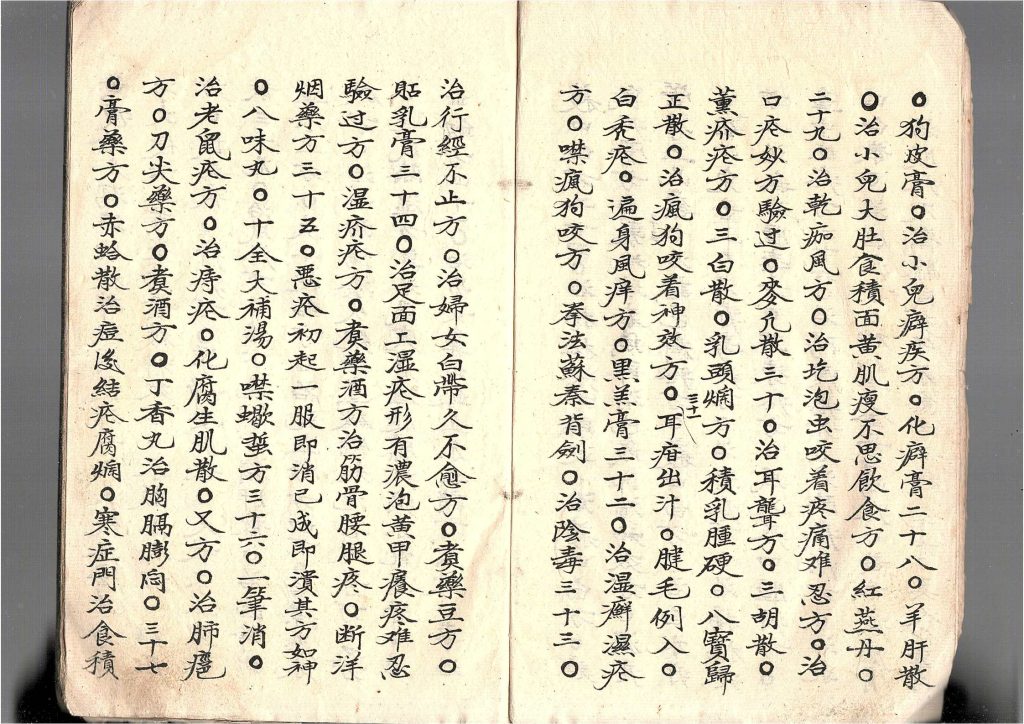 ○狗皮膏○治小兒癖疾方○化癖膏二十八○羊肝散
○治小兒大肚食積面黄肌瘦不思飲食方○紅燕丹○
二十九○治乾痂風方○治圪泡虫咬着疼痛难忍方○治
口疮妙方驗过○麥冗散三十○治耳聾方○三胡散○
薰疥疮方○三白散○乳頭爛方○積乳腫硬○八寶歸
正散○治瘋狗咬着神效方○三十一耳疳出汁○腱毛例入○
白秃疮○遍身風痒方○黑羔膏三十二○治湿癣濕疮
方○噤瘋狗咬方○拳法蘇秦背劍○治陰毒三十三○
治行經不止方○治婦女白帶久不愈方○煮藥豆方○
貼乳膏三十四○治足面工湿疮形有濃泡黄甲癢疼难忍
驗过方○湿疥疮方○煮藥酒方治筋骨腰腿疼○断洋
烟藥方三十五○惡疮初起一服即消已成即潰其方如神
○八味丸○十全大補湯○噤蠍蜇方三十六○一筆消○
治老鼠疮方○治痔疮○化腐生肌散○又方○治肺癰
方○刀尖藥方○煮酒方○丁香丸治胸膈膨悶○三十七
○膏藥方○赤蛤散治痘後結疮腐爛○寒症門治食積